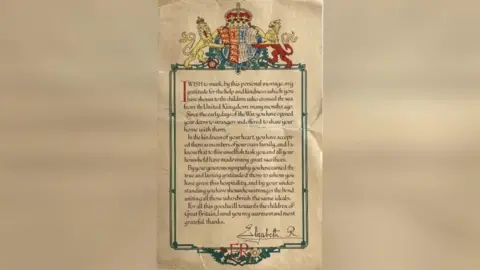 I WISH to mark, by this personal message, my
gratitude for the help and kindness which you
have shown to the children who crossed the sea
from the United Kingdom many months ago.
Since the early days of the War, you have opened
your doors to strangers and offered to share your
home with them.
In the kindness of your heart, you have accepted
them as members of your own family, and I
know that to this unselfish task you and all your
household have made many great sacrifices.
By your generous sympathy you have earned the
true and lasting gratitude of those to whom you
have given this hospitality, and by your under-
standing you have shown how strong is the bond
uniting all those who cherish the same ideals.
For all this goodwill towards the children of
Great Britain, I send you my warmest and most
grateful thanks.
Elizabeth R
ER